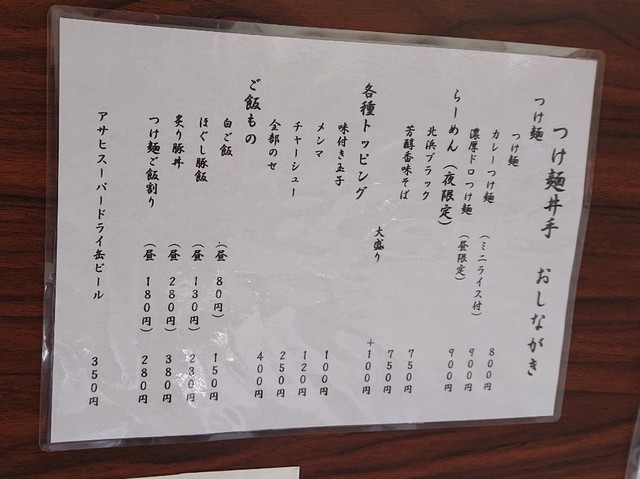 つけ麺井手 おしながき
つけ麺
つけ麺 800円
カレーつけ麺 (ミニライス付) 900円
濃厚ドロつけ麺 (昼限定) 900円
らーめん (夜限定)
北浜ブラック 750円
芳醇香味そば 750円
大盛り +100円
各種トッピング
味付き玉子 100円
メンマ 120円
チャーシュー 250円
全部のせ 400円
ご飯もの
白ご飯 (昼 80円) 150円
ほぐし豚飯 (昼 130円) 230円
炙り豚丼 (昼 280円) 380円
つけ麺ご飯割り (昼 180円) 280円
アサヒスーパードライ缶ビール 350円